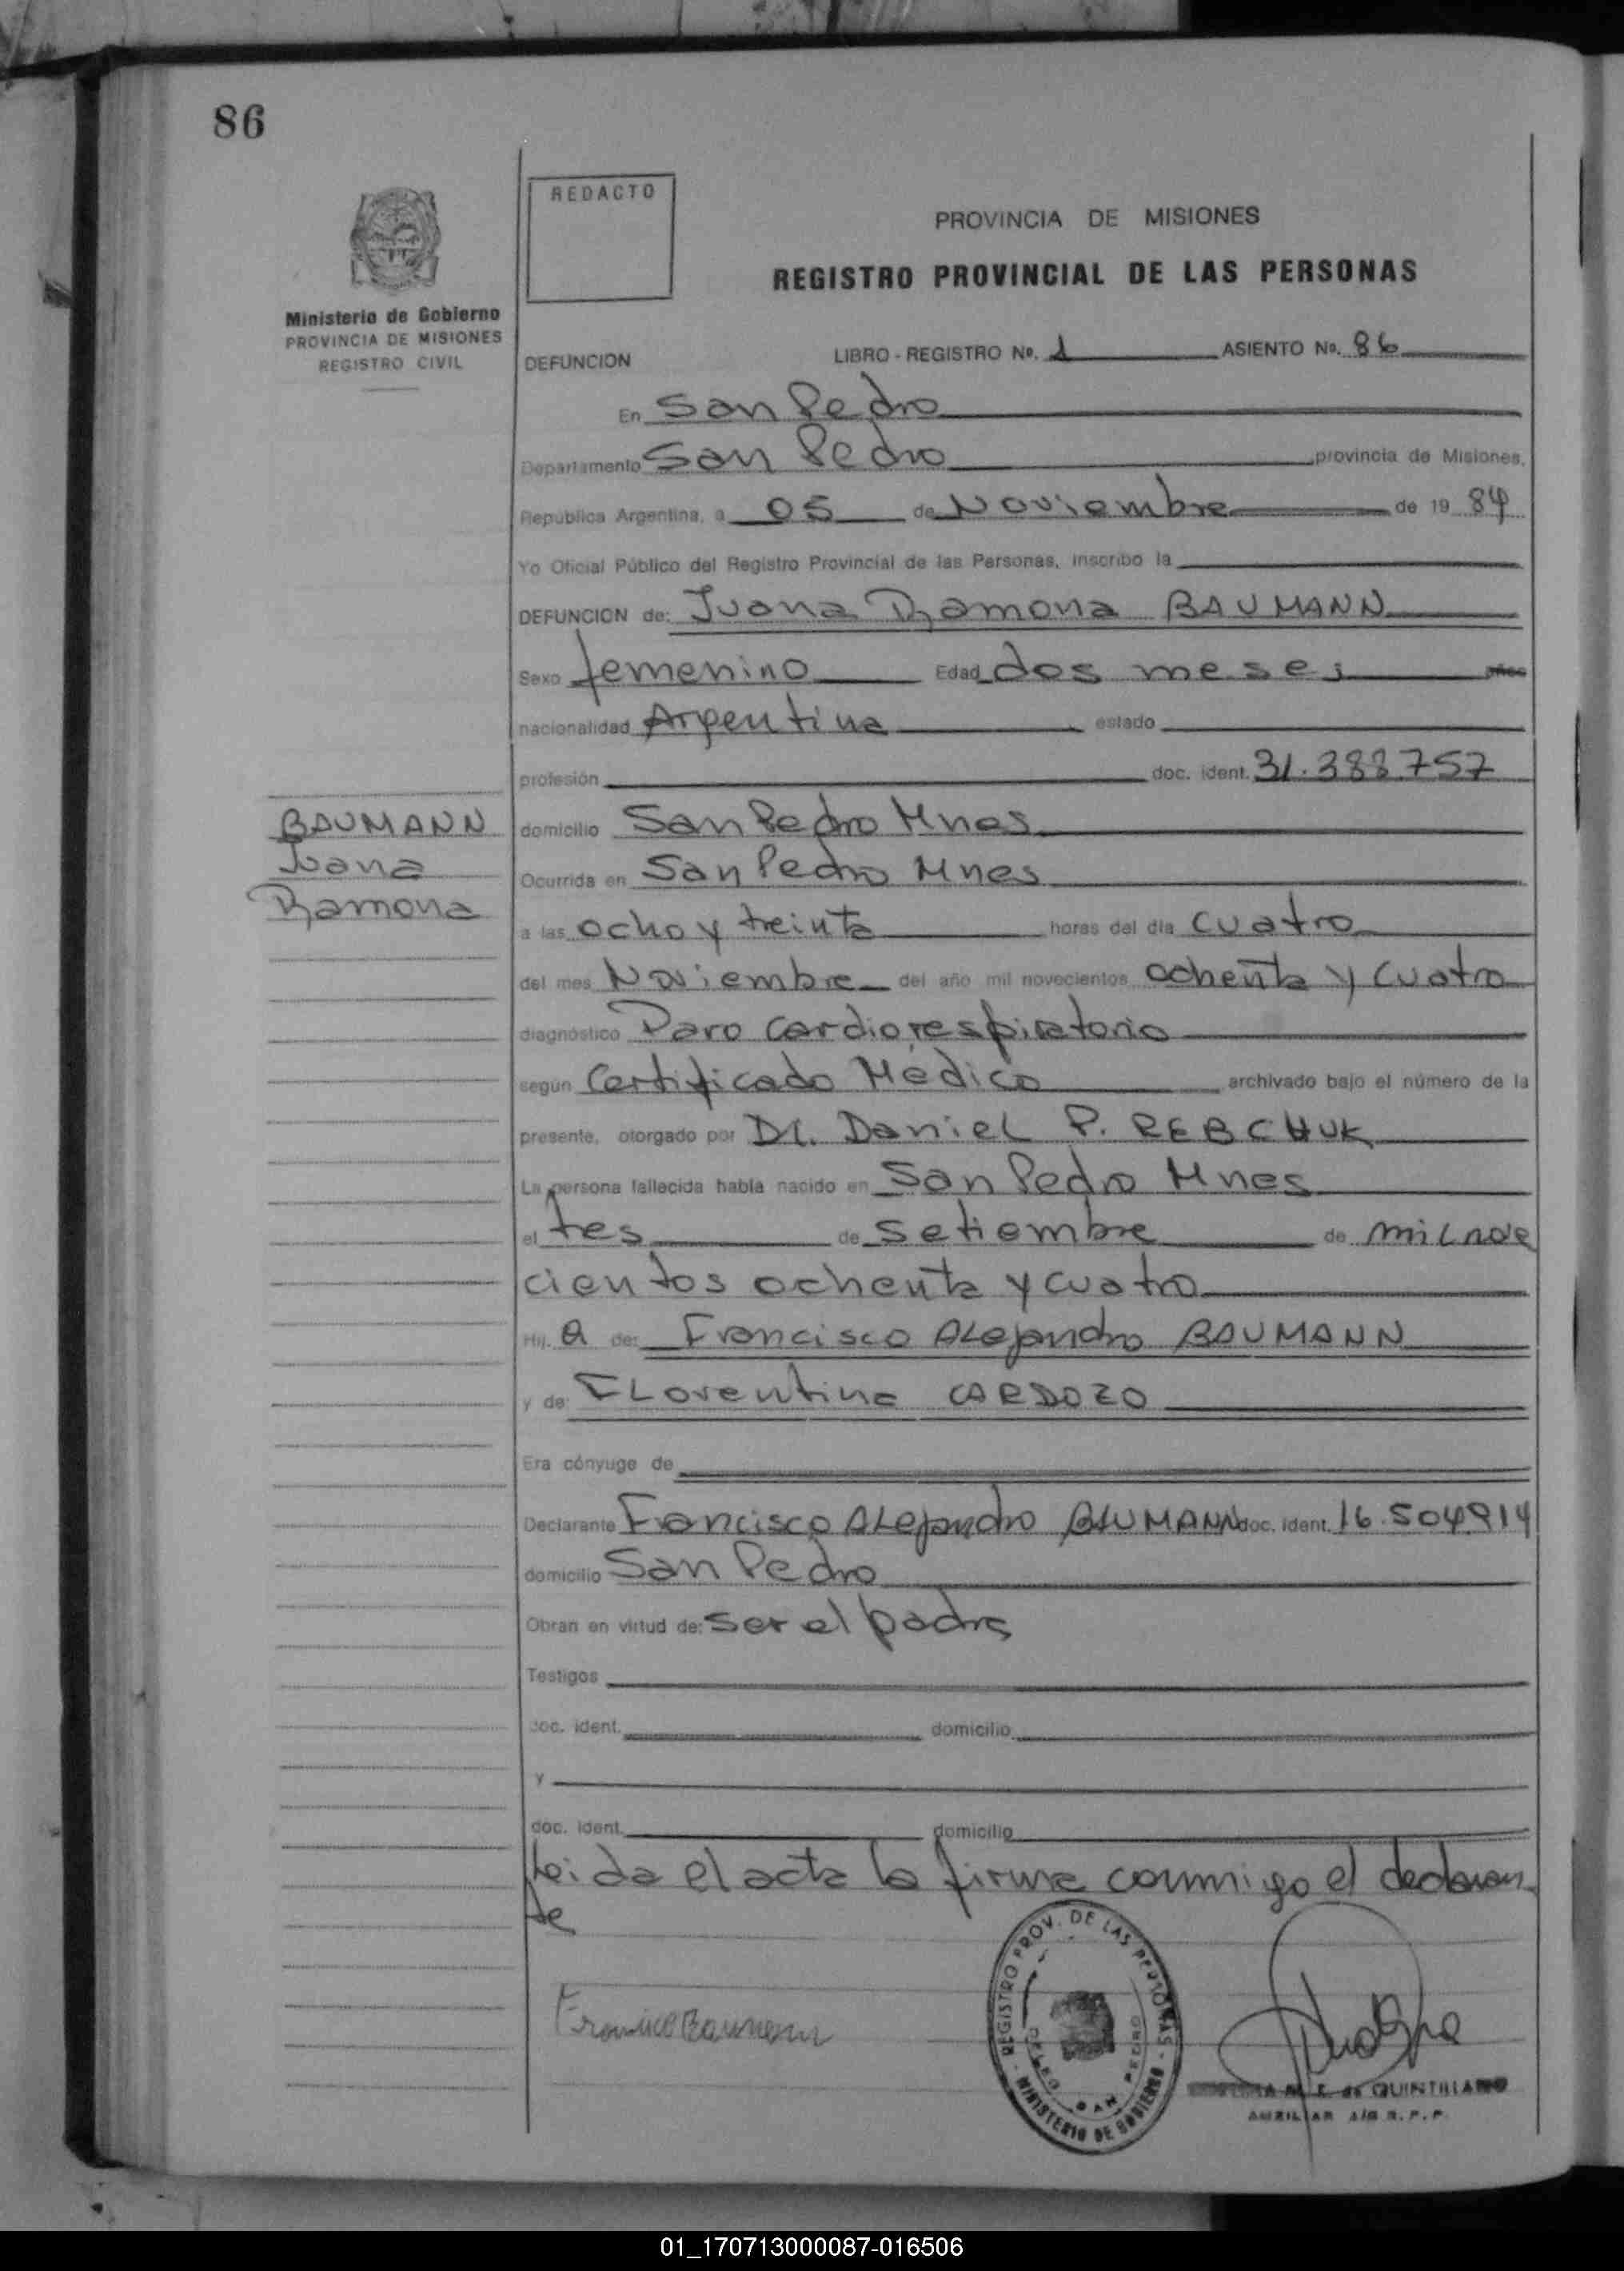 86
REDACTO
PROVINCIA DE MISIONES
REGISTRO PROVINCIAL DE LAS PERSONAS
Ministerio de Gobierno
PROVINCIA DE MISIONES
REGISTRO CIVIL
DEFUNCION LIBRO - REGISTRO No. 1 ASIENTO No. 86
En San Pedro
Departamento San Pedro provincia de Misiones,
República Argentina, a 05 de Noviembre de 19 84
Yo Oficial Público del Registro Provincial de las Personas, inscribo la
DEFUNCION de: Juana Ramona BAUMANN
Sexo femenino Edad dos meses años
nacionalidad Argentina estado
profesión doc. ident. 31.388.757
BAUMANN
Juana
Ramona
domicilio San Pedro Mnes
Ocurrida en San Pedro Mnes
a las ocho y treinta horas del día cuatro
del mes Noviembre del año mil novecientos ochenta y cuatro
diagnóstico Paro cardiorespiratorio
según Certificado Médico archivado bajo el número de la
presente, otorgado por Dr. Daniel P. REBCHUK
La persona fallecida había nacido en San Pedro Mnes
el tres de setiembre de mil nove
cientos ochenta y cuatro
Hij. a de: Francisco Alejandro BAUMANN
y de: Florentina CARDOZO
Era cónyuge de
Declarante Francisco Alejandro BAUMANN doc. ident. 16.504914
domicilio San Pedro
Obran en virtud de: ser el padre
Testigos
doc. ident. domicilio
y
doc. ident. domicilio
Leida el acta la firma conmigo el declaran
te
Francisco Baumann
REGISTRO PROV. DE LAS PERSONAS - MINISTERIO DE GOBIERNO
DELEG. SAN PEDRO
de QUINTILIANO
AUXILIAR A/C R.P.P.
01_170713000087-016506